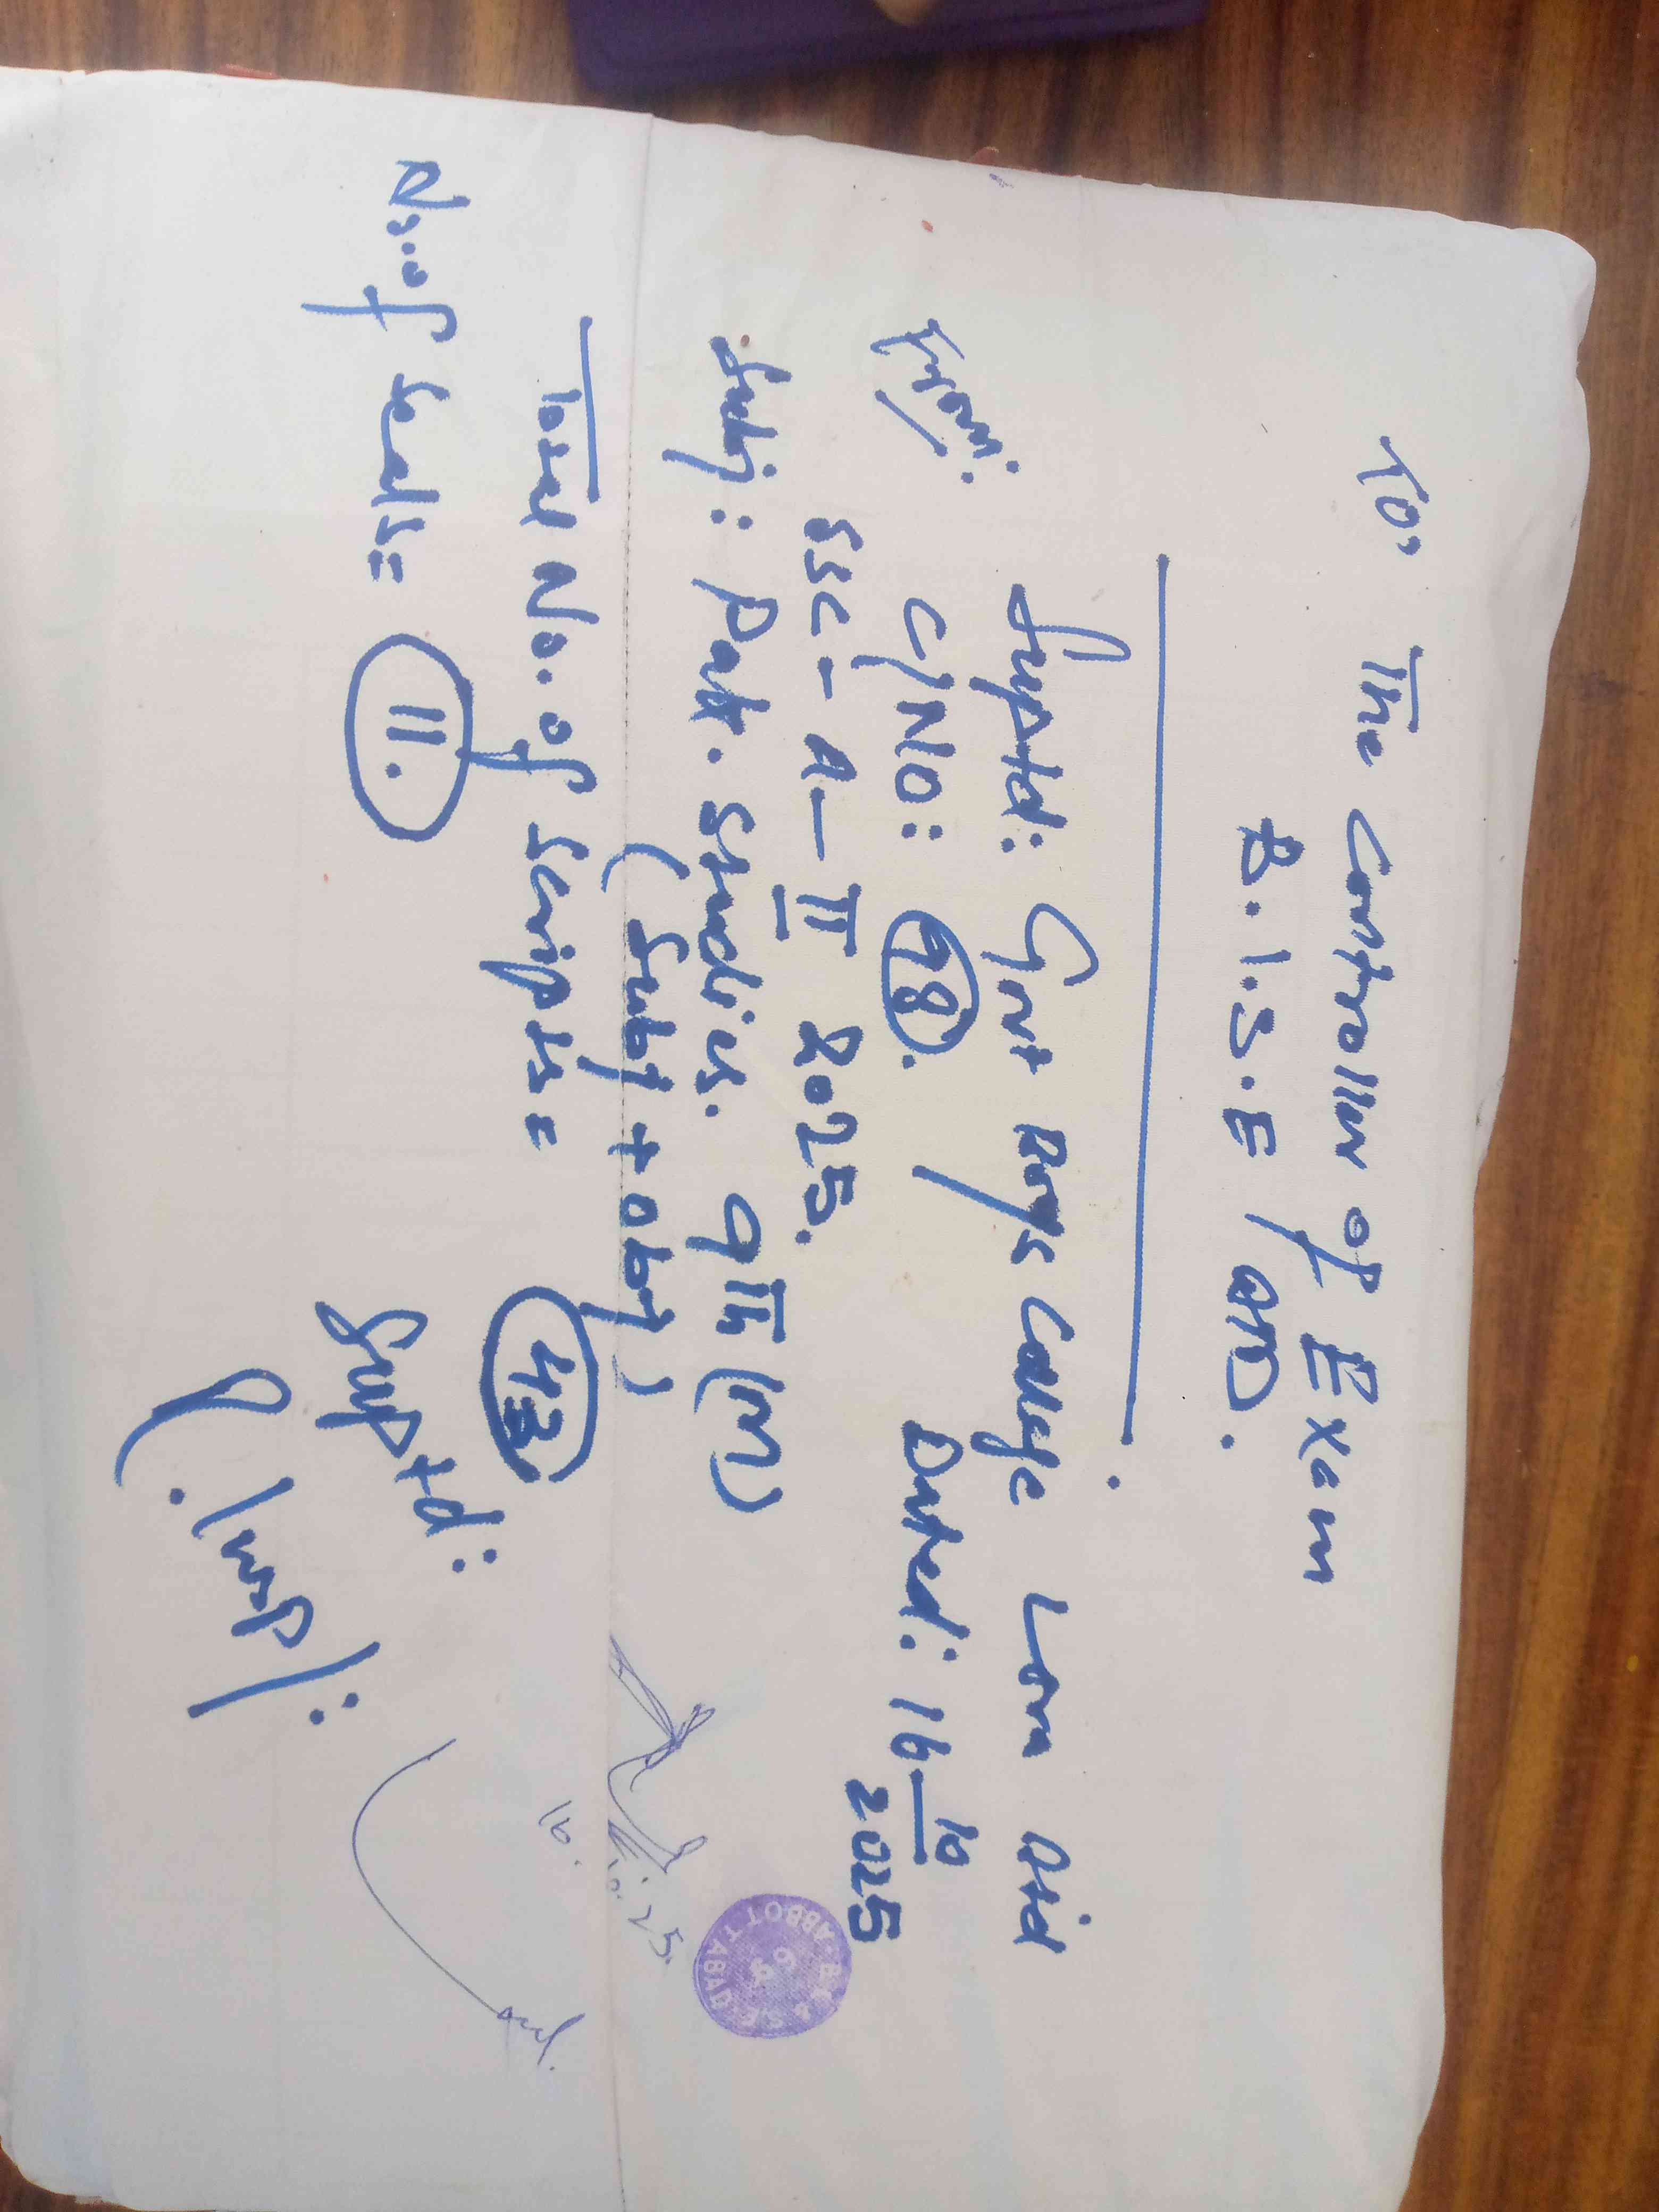 To, The Controller of Exam
B.I.S.E / ATD.
From:
Suptd: Govt Boys College Lora Atd
C/NO: 98. Dated: 16-10
2025
SSC-A-II 2025.
Subj: Pak. Studies. 9th (M)
(Subj + obj)
Total No. of Scripts = 43
No. of Seals = 11.
Suptd:
16.
10.25.
B.I.S.E.
ABBOTTABAD